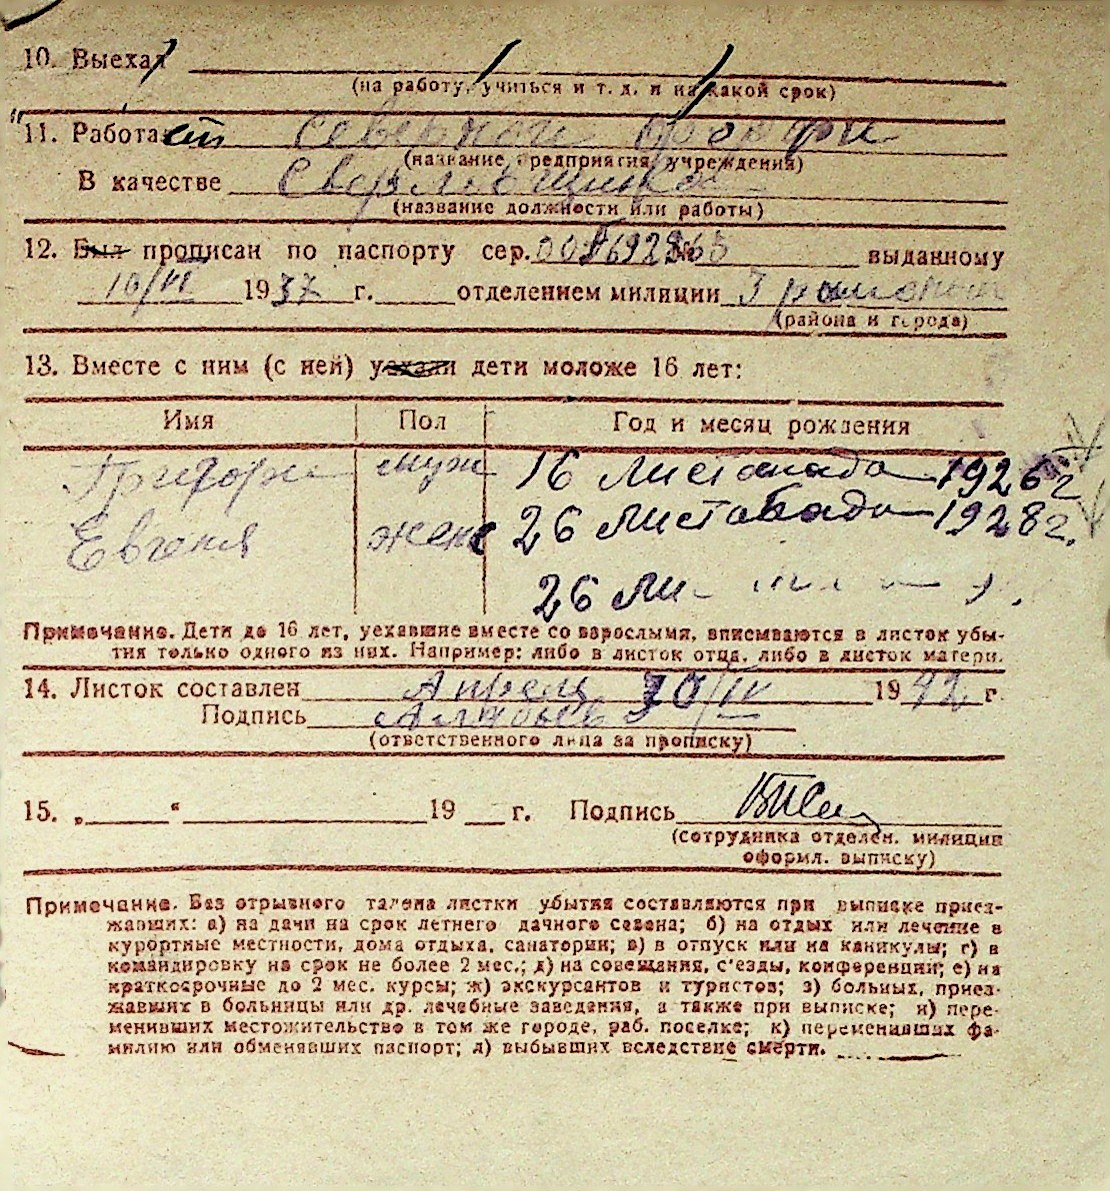 10. Выехал
(на работу, учиться и т. д. и на какой срок)
11. Работает Северной
(название предприятия, учреждения)
В качестве Сверловщика
(название должности или работы)
12. Был прописан по паспорту сер. № выданному
10/VI 1937 г. отделением милиции 3
(района и города)
13. Вместе с ним (с ней) уехали дети моложе 16 лет:
Имя Пол Год и месяц рождения
Григори муж 16 Листопада 1926 г
Евгения жен 26 Листобада 1928 г.
26 Ли
Примечание. Дети до 16 лет, уехавшие вместе со взрослыми, вписываются в листок убы-
тия только одного из них. Например: либо в листок отца, либо в листок матери.
14. Листок составлен Апрель 30/IV 1942 г.
Подпись
(ответственного лица за прописку)
15. „ “ 19 г. Подпись
(сотрудника отделен. милиции
оформл. выписку)
Примечание. Без отрывного талона листки убытия составляются при выписке приез-
жавших: а) на дачи на срок летнего дачного сезона; б) на отдых или лечение в
курортные местности, дома отдыха, санатории; в) в отпуск или на каникулы; г) в
командировку на срок не более 2 мес.; д) на совещания, с'езды, конференции; е) на
краткосрочные до 2 мес. курсы; ж) экскурсантов и туристов; з) больных, приез-
жавших в больницы или др. лечебные заведения, а также при выписке; и) пере-
менивших местожительство в том же городе, раб. поселке; к) переменивших фа-
милию или обменявших паспорт; л) выбывших вследствие смерти.